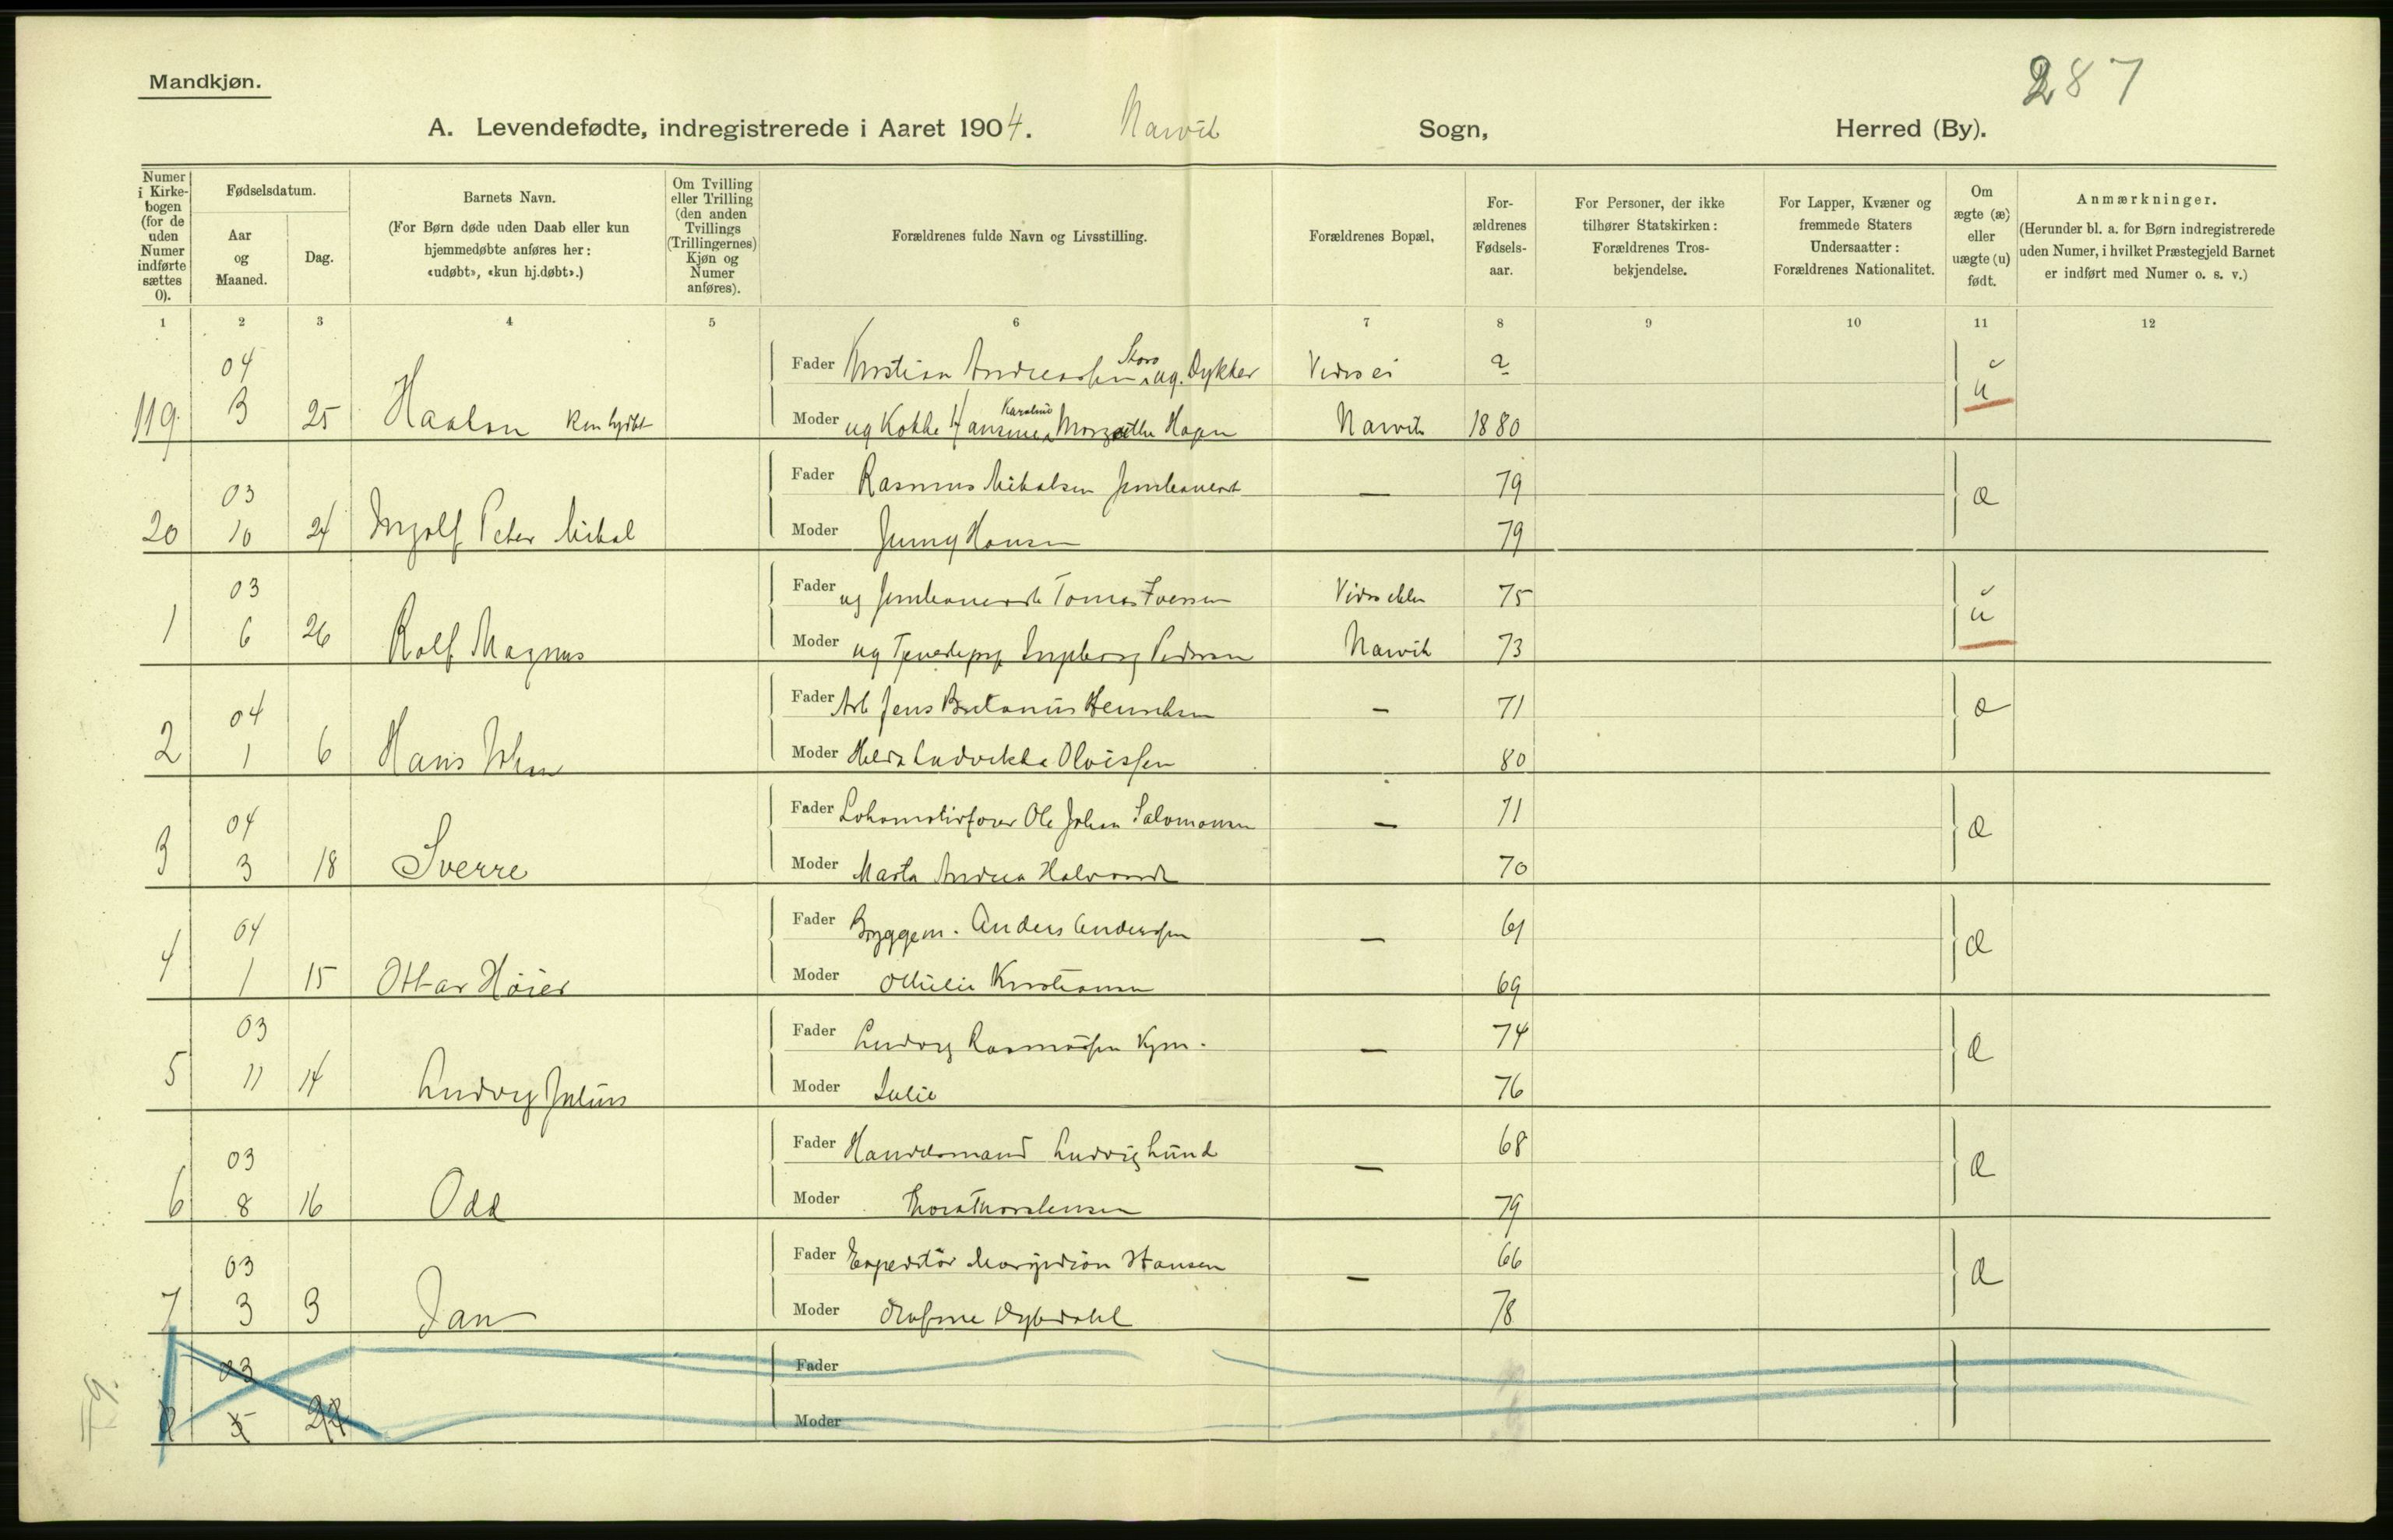 287
Mandkjøn.
A. Levendefødte, indregistrerede i Aaret 1904. Narvik Sogn, Herred (By).
Numer i Kirkebogen (for de uden Numer indførte sættes 0).
Fødselsdatum.
Aar og Maaned.
Dag.
Barnets Navn.
(For Børn døde uden Daab eller kun hjemmedøbte anføres her: «udøbt», «kun hj.døbt».)
Om Tvilling eller Trilling (den anden Tvillings (Trillingernes) Kjøn og Numer anføres).
Forældrenes fulde Navn og Livsstilling.
Forældrenes Bopæl,
Forældrenes Fødselsaar.
For Personer, der ikke tilhører Statskirken: Forældrenes Trosbekjendelse.
For Lapper, Kvæner og fremmede Staters Undersaatter: Forældrenes Nationalitet.
Om ægte (æ) eller uægte (u) født.
Anmærkninger.
(Herunder bl. a. for Børn indregistrerede uden Numer, i hvilket Præstegjeld Barnet er indført med Numer o. s. v.)
1 2 3 4 5 6 7 8 9 10 11 12
04 Fader Kristian Andreassen Storo ug. Dykker ? u
119. 3 25 Haakon Moder ug Kokke Hansine Karoline Margrethe Hagen Narvik 1880
03 Fader Rasmus Mikalsen Jernbanearb — 79 æ
20 10 24 Ingolf Peter Mikal Moder Jenny Hansen 79
03 Fader ug Jernbanearb Tomas Iversen 75 u
1 6 26 Rolf Magnus Moder ug Tjenestepig Ingeborg Pedersen Narvik 73
04 Fader Arb Jens Henriksen — 71 æ
2 1 6 Hans Johan Moder Ludvikka Olaissen 80
04 Fader Lokomotivfører Ole Johan Salomonsen — 71 æ
3 3 18 Sverre Moder Marta Andrea 70
04 Fader Byggem. Anders Anderssen — 61 æ
4 1 15 Ottar Höier Moder Ottilie Kristiansen 69
03 Fader Ludvig Rasmussen Kjm. — 74 æ
5 11 14 Ludvig Julius Moder Julie 76
03 Fader Handelsmand Ludvig Lund — 68 æ
6 8 16 Odd Moder Thora Thorstensen 79
03 Fader Expeditör Hansen — 66 æ
7 3 3 Jan Moder Dybdahl 78
03 Fader
8 5 Moder